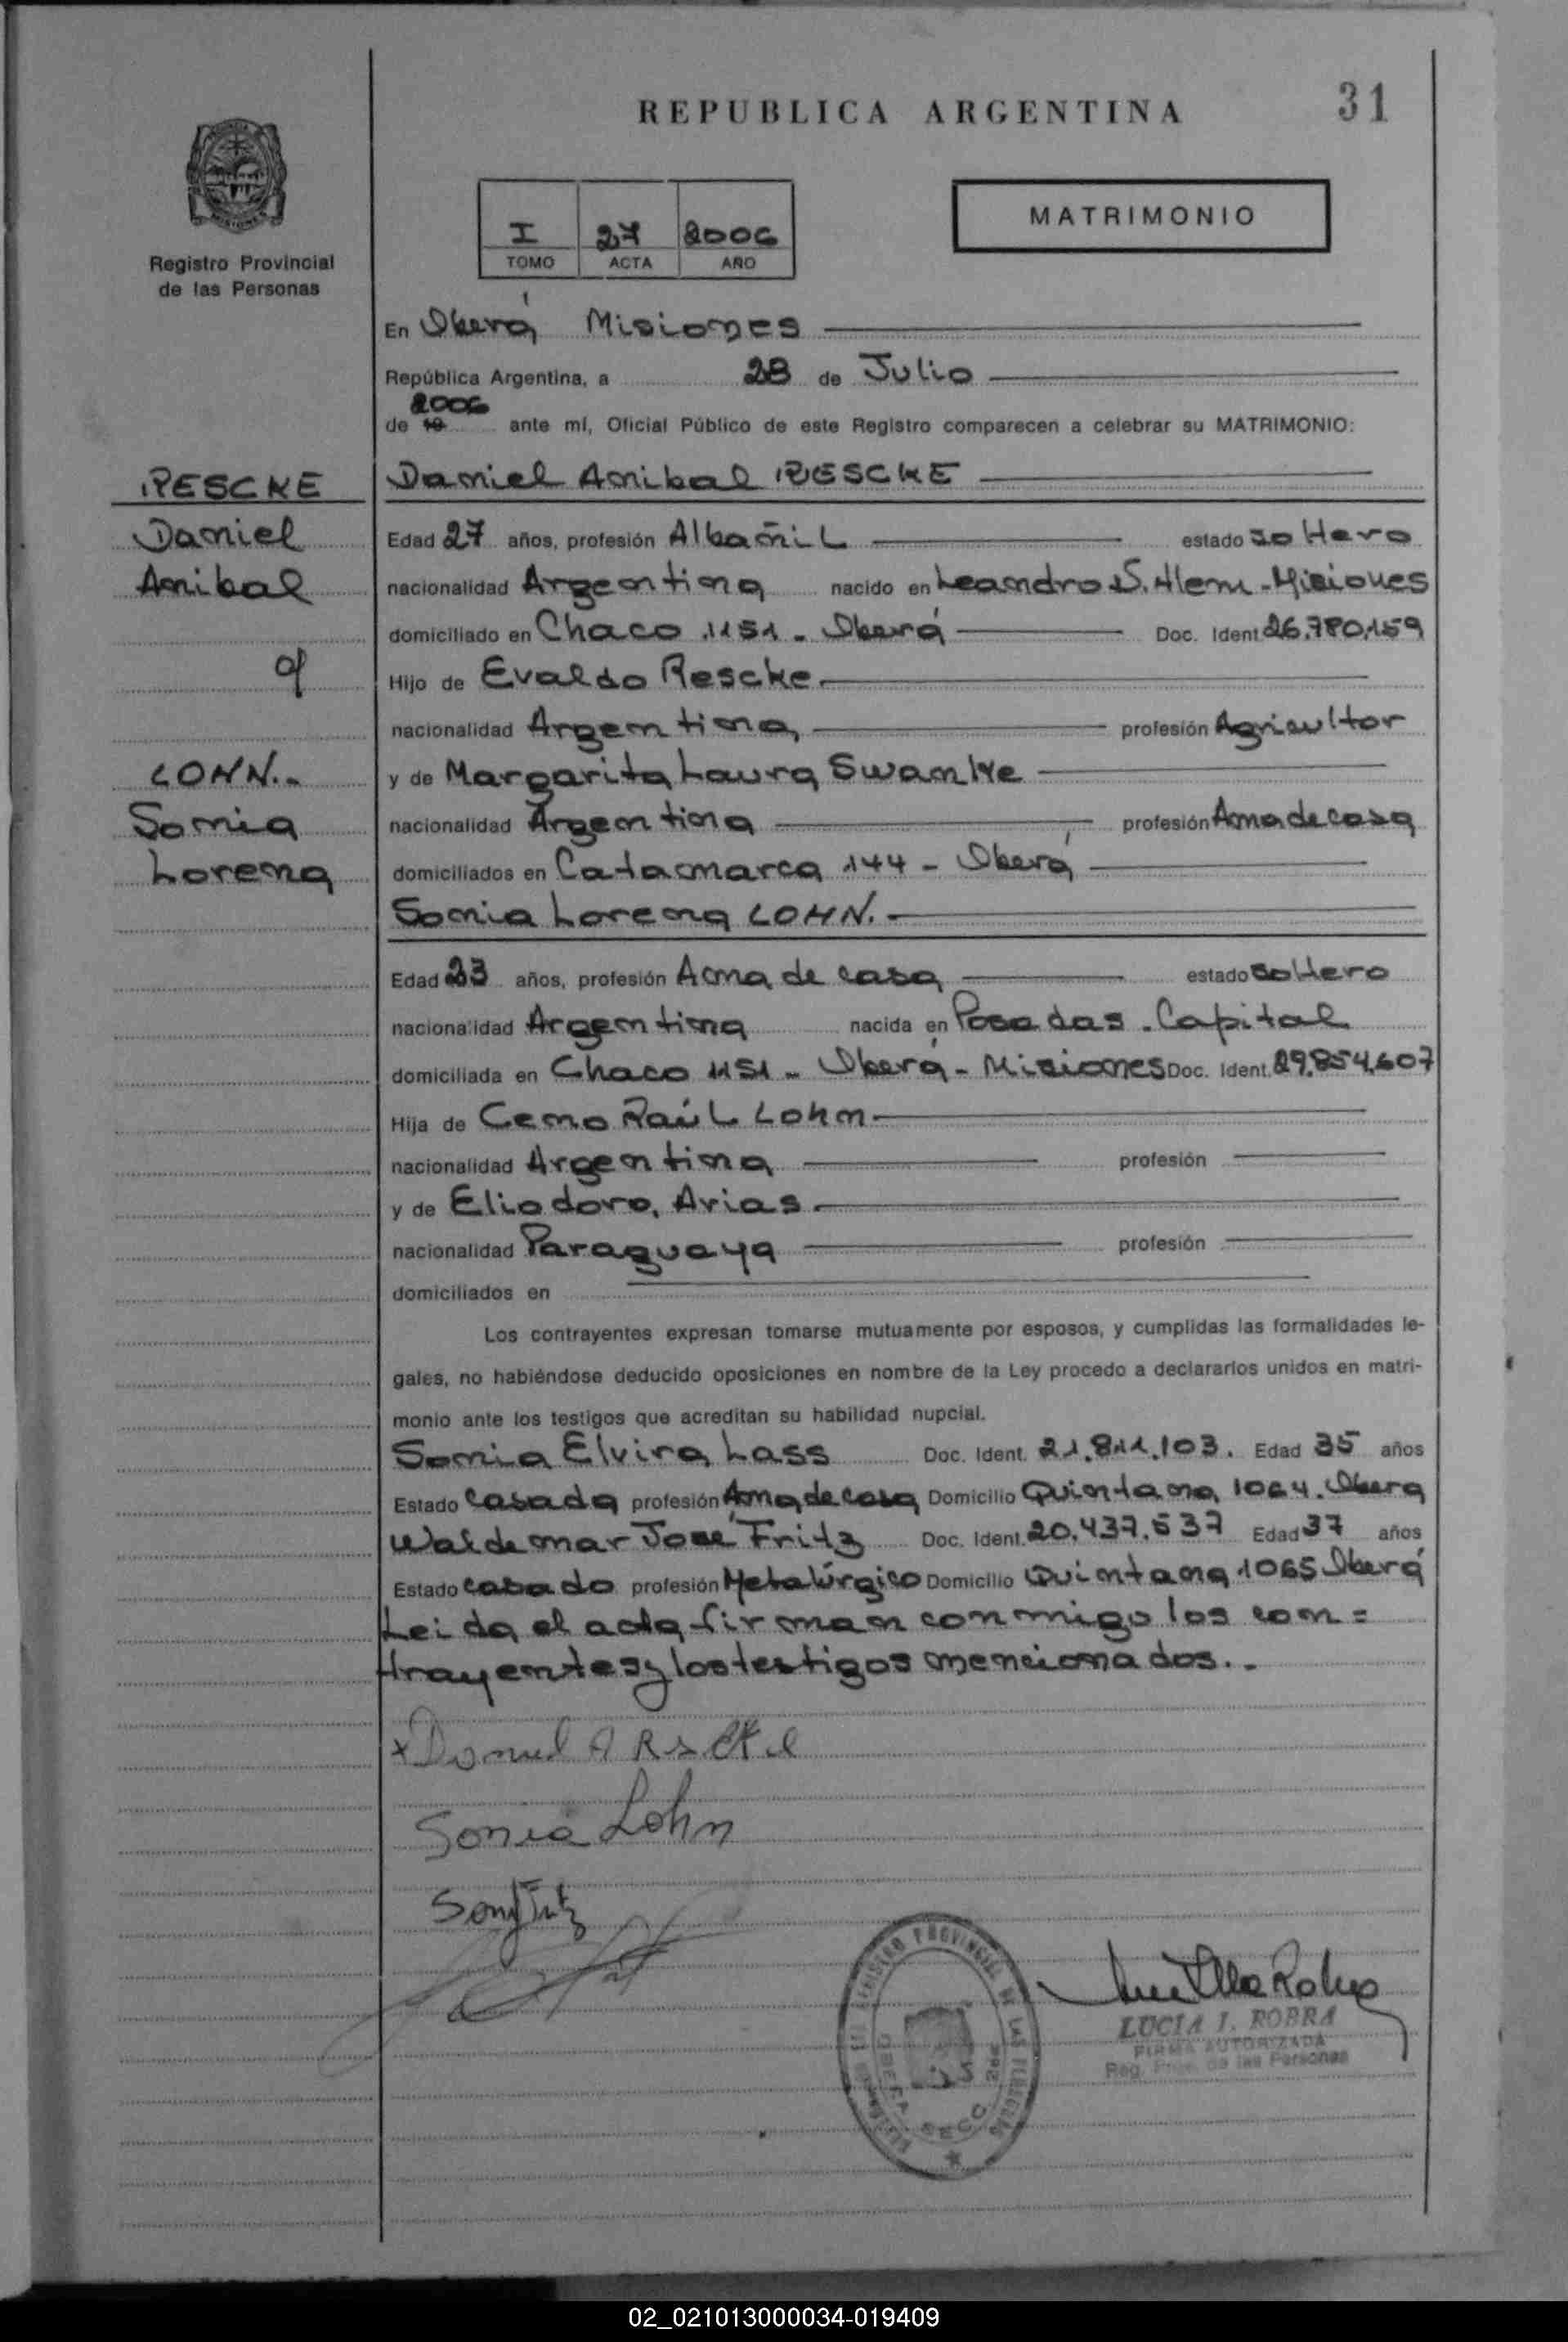 REPUBLICA ARGENTINA
31
I 27 2006
TOMO ACTA AÑO
MATRIMONIO
Registro Provincial
de las Personas
En Oberá Misiones
República Argentina, a 28 de Julio
2006
de 19 ante mí, Oficial Público de este Registro comparecen a celebrar su MATRIMONIO:
RESCKE
Daniel
Anibal
LOHN.-
Sonia
Lorena
Daniel Anibal RESCKE
Edad 27 años, profesión Albañil estado soltero
nacionalidad Argentina nacido en Leandro N. Alem - Misiones
domiciliado en Chaco 1151 - Oberá Doc. Ident. 26.780.159
Hijo de Evaldo Rescke
nacionalidad Argentina profesión Agricultor
y de Margarita Laura Swanke
nacionalidad Argentina profesión Ama de casa
domiciliados en Catamarca 144 - Oberá
Sonia Lorena LOHN.-
Edad 23 años, profesión Ama de casa estado soltero
nacionalidad Argentina nacida en Posadas - Capital
domiciliada en Chaco 1151 - Oberá - Misiones Doc. Ident. 29.854.607
Hija de Ceno Raúl Lohn
nacionalidad Argentina profesión
y de Eliodora, Arias
nacionalidad Paraguaya profesión
domiciliados en
Los contrayentes expresan tomarse mutuamente por esposos, y cumplidas las formalidades le-
gales, no habiéndose deducido oposiciones en nombre de la Ley procedo a declararlos unidos en matri-
monio ante los testigos que acreditan su habilidad nupcial.
Sonia Elvira Lass Doc. Ident. 21.811.103. Edad 35 años
Estado casada profesión Ama de casa Domicilio Quintana 1064. Oberá
Waldemar José Fritz Doc. Ident. 20.437.537 Edad 37 años
Estado casado profesión Metalúrgico Domicilio Quintana 1065 Oberá
Leida el acta firman conmigo los con=
trayentes y los testigos mencionados.-
Sonia Lohn
LUCIA I. ROBRA
FIRMA AUTORIZADA
Reg. Prov. de las Personas
02_021013000034-019409